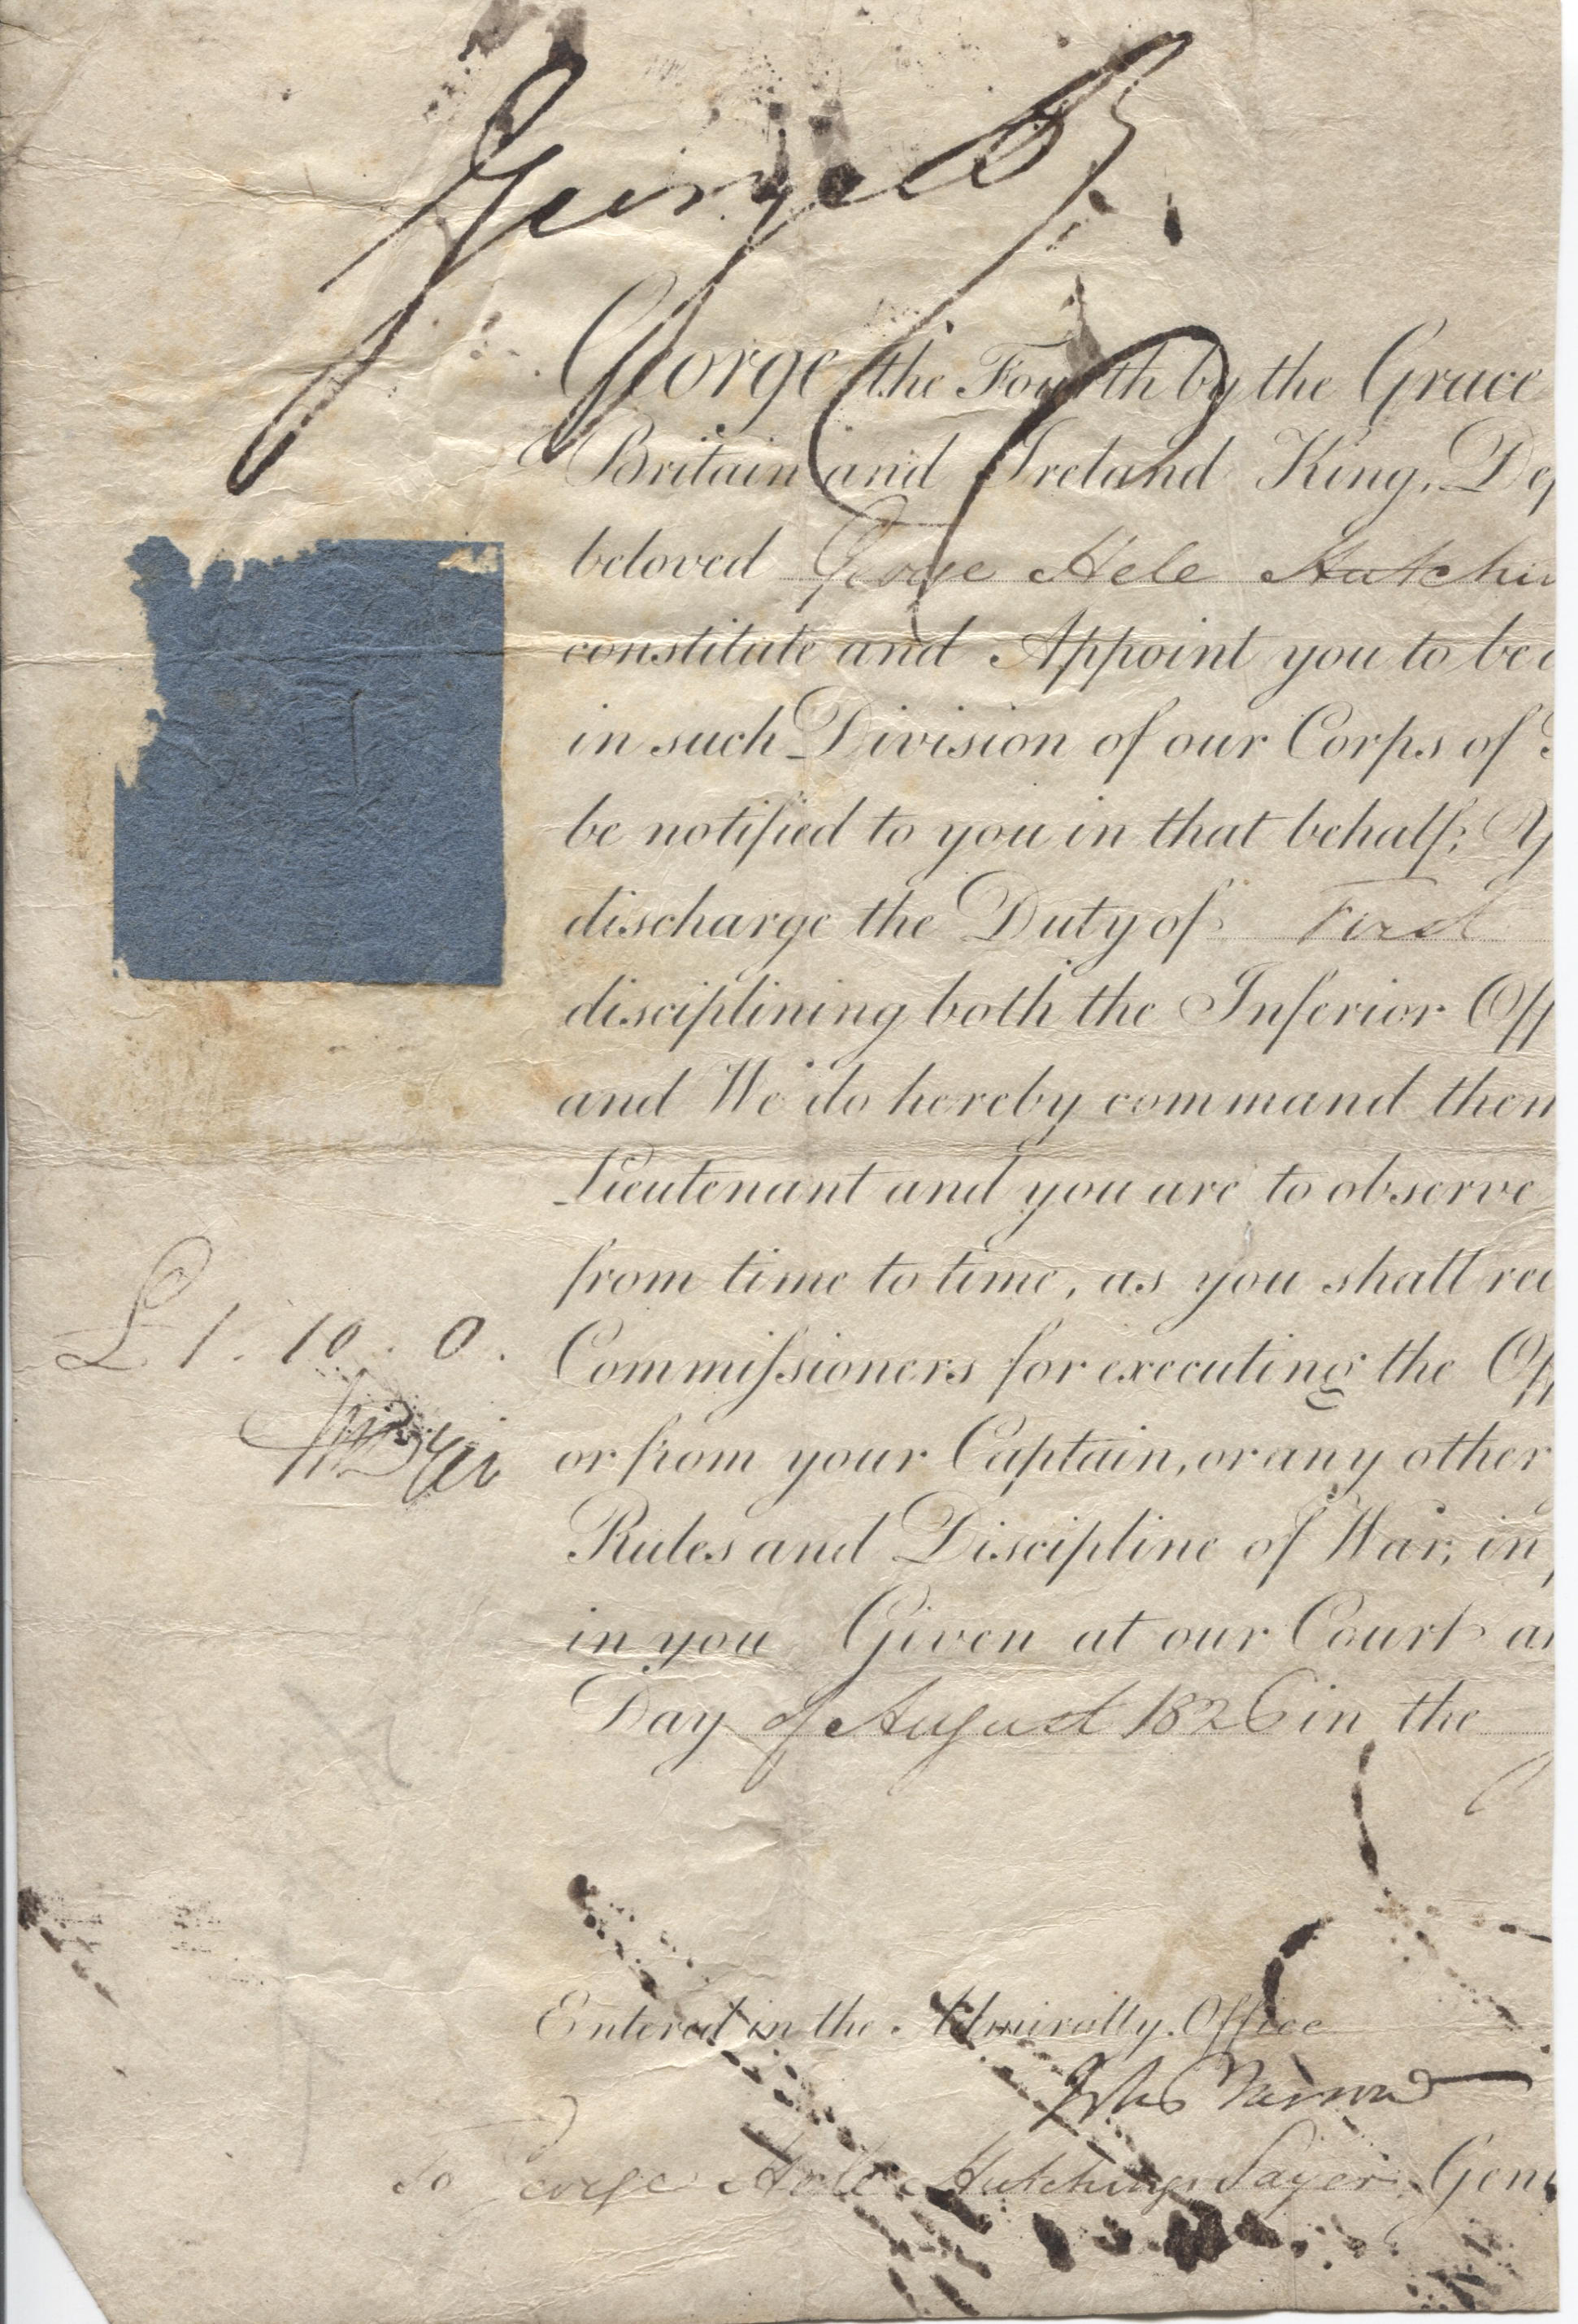 George R.
George the Fourth by the Grace
Britain and Ireland King, De
beloved George Hele Hutchin
constitute and Appoint you to be a
in such Division of our Corps of
be notified to you in that behalf; Y
discharge the Duty of First
disciplining both the Inferior Off
and We do hereby command them
Lieutenant and you are to observe
from time to time, as you shall rec
£1. 10. 0.
Commissioners for executing the Off
or from your Captain, or any other
Rules and Discipline of War, in
in you Given at our Court a
Day of August 1826 in the
Entered in the Admiralty Office
John Barrow
To George Hele Hutchings Sayer, Gen